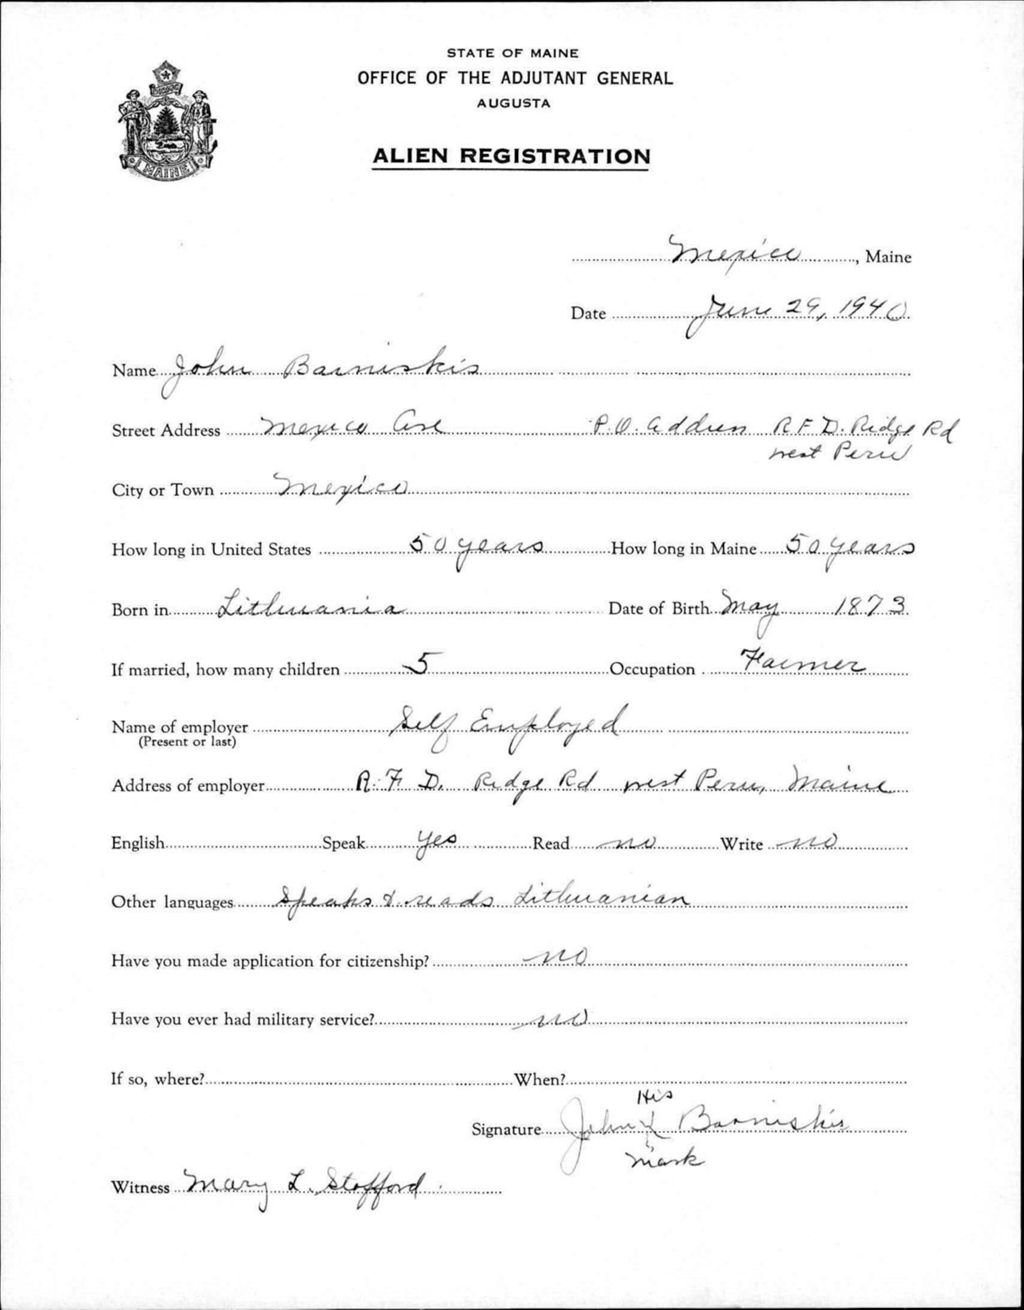 STATE OF MAINE
OFFICE OF THE ADJUTANT GENERAL
AUGUSTA
ALIEN REGISTRATION
MAINE
Mexico, Maine
Date June 29, 1940
Name John Barniskis
Street Address Mexico Ave P.O. Address R.F.D. Ridge Rd
West Peru
City or Town Mexico
How long in United States 50 years How long in Maine 50 years
Born in Lithuania Date of Birth May 1873
If married, how many children 5 Occupation Farmer
Name of employer Self Employed
(Present or last)
Address of employer R.F.D. Ridge Rd West Peru, Maine
English Speak Yes Read no Write no
Other languages Speaks & reads Lithuanian
Have you made application for citizenship? no
Have you ever had military service? no
If so, where? When?
His
Signature John X Barniskis
mark
Witness Mary L. Stafford